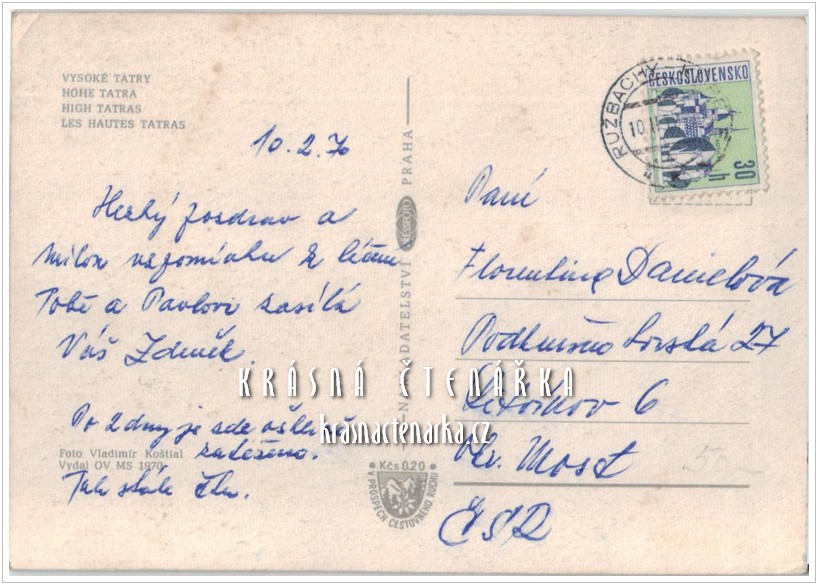 VYSOKÉ TATRY
HOHE TATRA
HIGH TATRAS
LES HAUTES TATRAS
10.2.70
Hezký pozdrav a
milou vzpomínku z léčení
Tobě a Pavlovi zasílá
Váš Zdeněk.
Po 2 dny je zde ošklivě
zataženo.
Tak stále
Foto Vladimír Koštial
Vydal OV MS 1970
NAKLADATELSTVÍ PRESSFOTO PRAHA
Kčs 0.20
V PROSPĚCH CESTOVNÉHO RUCHU
RUŽBACHY
10.
ČESKOSLOVENSKO
30 h
Paní
Florentina Danielová
27
Litvínov 6
Okr. Most
ČSR
50
KRÁSNÁ ČTENÁŘKA
krasnactenarka.cz